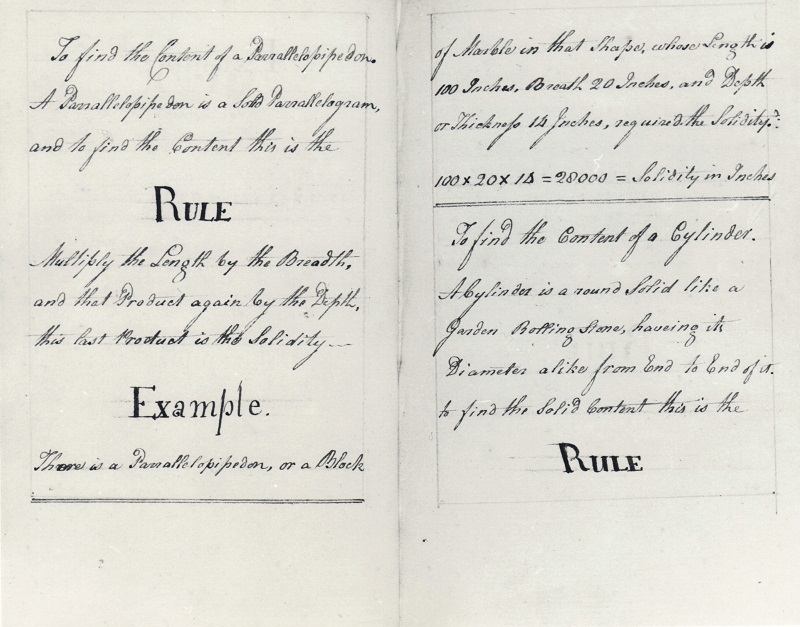 To find the Content of a Parrallelopipedon.
A Parrallelopipedon is a Solid Parrallelogram,
and to find the Content this is the
RULE
Multiply the Length by the Breadth,
and that Product again by the Depth,
this last Product is the Solidity—
Example.
There is a Parrallelopipedon, or a Block
of Marble in that Shape, whose Length is
100 Inches, Breath 20 Inches, and Depth
or Thickness 14 Inches, required the Solidity?:
100 x 20 x 14 = 28000 = Solidity in Inches
To find the Content of a Cylinder.
A Cylinder is a round Solid like a
Garden Rolling Stone, haveing its
Diameter alike from End to End of it.
to find the Solid Content this is the
RULE